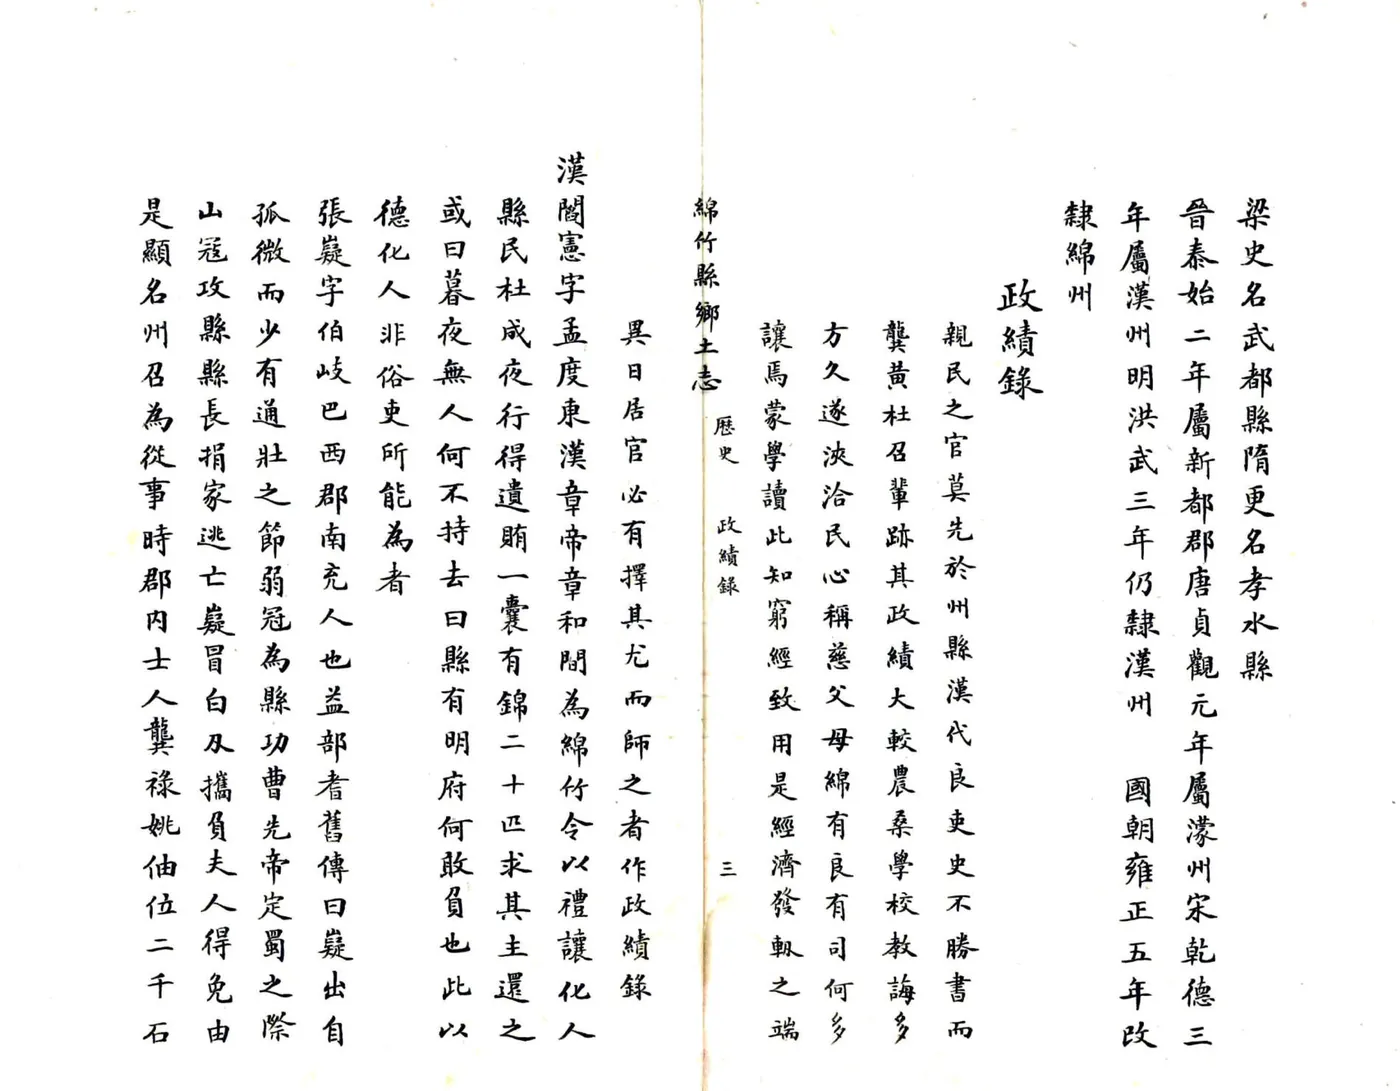 梁史名武都縣隋更名孝水縣
晉泰始二年屬新都郡唐貞觀元年屬濛州宋乾德三
年屬漢州明洪武三年仍隸漢州　國朝雍正五年改
隸綿州
政績錄
親民之官莫先於州縣漢代良吏史不勝書而
龔黃杜召輩跡其政績大較農桑學校教誨多
方久遂浹洽民心稱慈父母綿有良有司何多
讓焉蒙學讀此知窮經致用是經濟發軔之端
綿竹縣鄉土志　歷史　政績錄　三
異日居官必有擇其尤而師之者作政績錄
漢閻憲字孟度東漢章帝章和間為綿竹令以禮讓化人
縣民杜成夜行得遺賄一囊有錦二十匹求其主還之
或曰暮夜無人何不持去曰縣有明府何敢負也此以
德化人非俗吏所能為者
張嶷字伯岐巴西郡南充人也益部耆舊傳曰嶷出自
孤微而少有通壯之節弱冠為縣功曹先帝定蜀之際
山冦攻縣縣長捐家逃亡嶷冒白刄攜負夫人得免由
是顯名州召為從事時郡内士人龔祿姚伷位二千石